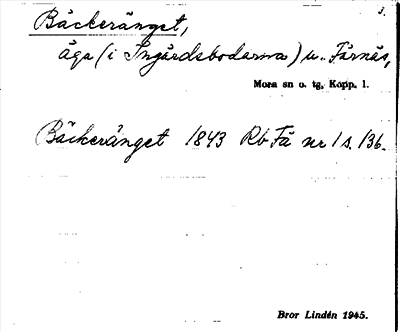 3.
Bäckeränget,
äga (i Ingärdsbodarna) u. Färnäs,
Mora sn o. tg, Kopp. l.
Bäckeränget 1843 Rb Fä nr 1 s. 136.
Bror Lindén 1945.